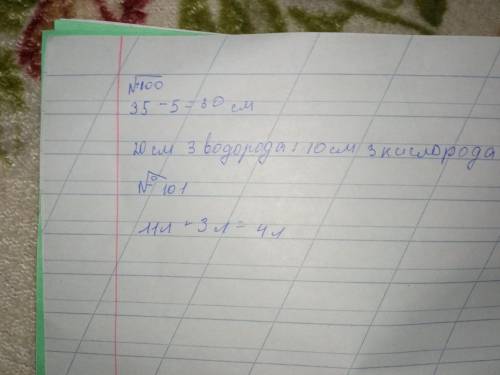 №100
35-5=30 см
20 см 3 водорода: 10 см 3 кислорода
№101
11л - 3 л = 4 л